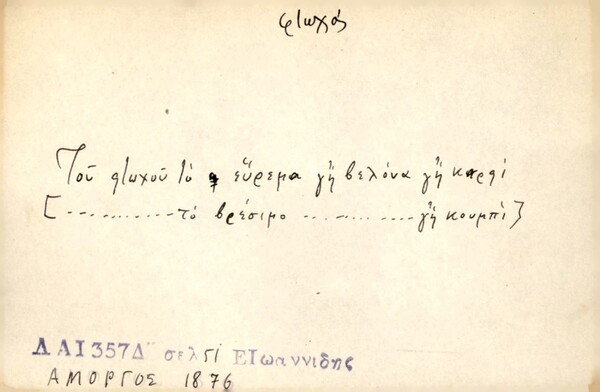 φτωχός
Τοῦ φτωχοῦ τό εὕρεμα γἤ βελόνα γἤ καρφί
[ - - - - - - - - - - τό βρέσιμο - - - - - - - - - - γἤ κουμπί]
ΔΑΙ357Δ΄΄ σελ ΕΙωαννιδης
ΑΜΟΡΓΟΣ 1876